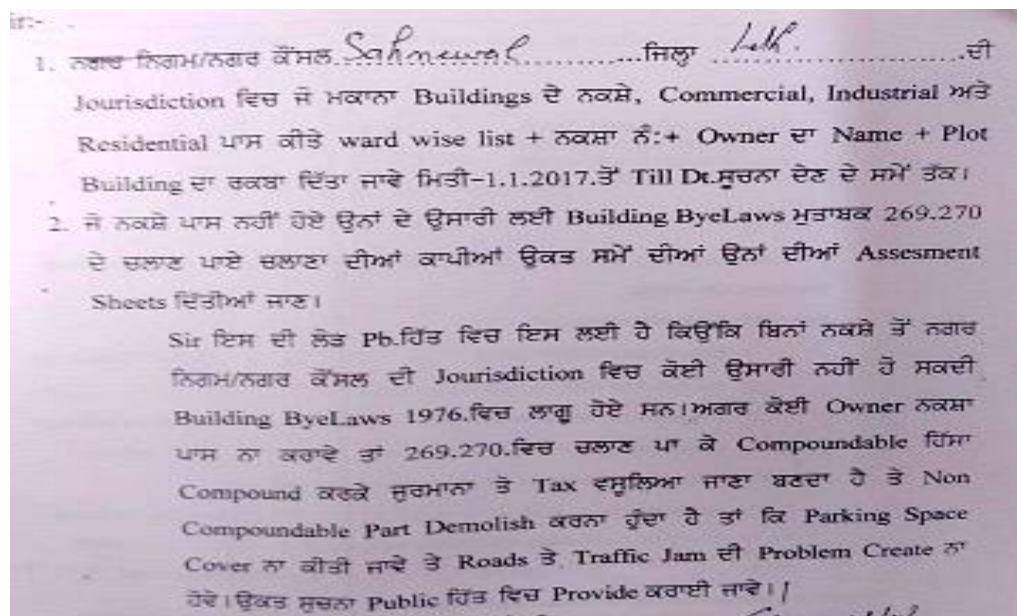 ir:-
1. ਨਗਰ ਨਿਗਮ/ਨਗਰ ਕੌਂਸਲ Sahnewal ਜਿਲ੍ਹਾ Ldh. ਦੀ
Jourisdiction ਵਿਚ ਜੋ ਮਕਾਨਾ Buildings ਦੇ ਨਕਸ਼ੇ, Commercial, Industrial ਅਤੇ
Residential ਪਾਸ ਕੀਤੇ ward wise list + ਨਕਸ਼ਾ ਨੰ:+ Owner ਦਾ Name + Plot
Building ਦਾ ਰਕਬਾ ਦਿੱਤਾ ਜਾਵੇ ਮਿਤੀ-1.1.2017.ਤੋਂ Till Dt.ਸੂਚਨਾ ਦੇਣ ਦੇ ਸਮੇਂ ਤੱਕ।
2. ਜੋ ਨਕਸ਼ੇ ਪਾਸ ਨਹੀਂ ਹੋਏ ਉਨਾਂ ਦੇ ਉਸਾਰੀ ਲਈ Building ByeLaws ਮੁਤਾਬਕ 269.270
ਦੇ ਚਲਾਣ ਪਾਏ ਚਲਾਣਾ ਦੀਆਂ ਕਾਪੀਆਂ ਉਕਤ ਸਮੇਂ ਦੀਆਂ ਉਨਾਂ ਦੀਆਂ Assesment
Sheets ਦਿੱਤੀਆਂ ਜਾਣ।
Sir ਇਸ ਦੀ ਲੋੜ Pb.ਹਿੱਤ ਵਿਚ ਇਸ ਲਈ ਹੈ ਕਿਉਂਕਿ ਬਿਨਾਂ ਨਕਸ਼ੇ ਤੋਂ ਨਗਰ
ਨਿਗਮ/ਨਗਰ ਕੌਂਸਲ ਦੀ Jourisdiction ਵਿਚ ਕੋਈ ਉਸਾਰੀ ਨਹੀਂ ਹੋ ਸਕਦੀ
Building ByeLaws 1976.ਵਿਚ ਲਾਗੂ ਹੋਏ ਸਨ।ਅਗਰ ਕੋਈ Owner ਨਕਸ਼ਾ
ਪਾਸ ਨਾ ਕਰਾਵੇ ਤਾਂ 269.270.ਵਿਚ ਚਲਾਣ ਪਾ ਕੇ Compoundable ਹਿੱਸਾ
Compound ਕਰਕੇ ਜੁਰਮਾਨਾ ਤੇ Tax ਵਸੂਲਿਆ ਜਾਣਾ ਬਣਦਾ ਹੈ ਤੇ Non
Compoundable Part Demolish ਕਰਨਾ ਹੁੰਦਾ ਹੈ ਤਾਂ ਕਿ Parking Space
Cover ਨਾ ਕੀਤੀ ਜਾਵੇ ਤੇ Roads ਤੇ Traffic Jam ਦੀ Problem Create ਨਾ
ਹੋਵੇ।ਉਕਤ ਸੂਚਨਾ Public ਹਿੱਤ ਵਿਚ Provide ਕਰਾਈ ਜਾਵੇ।